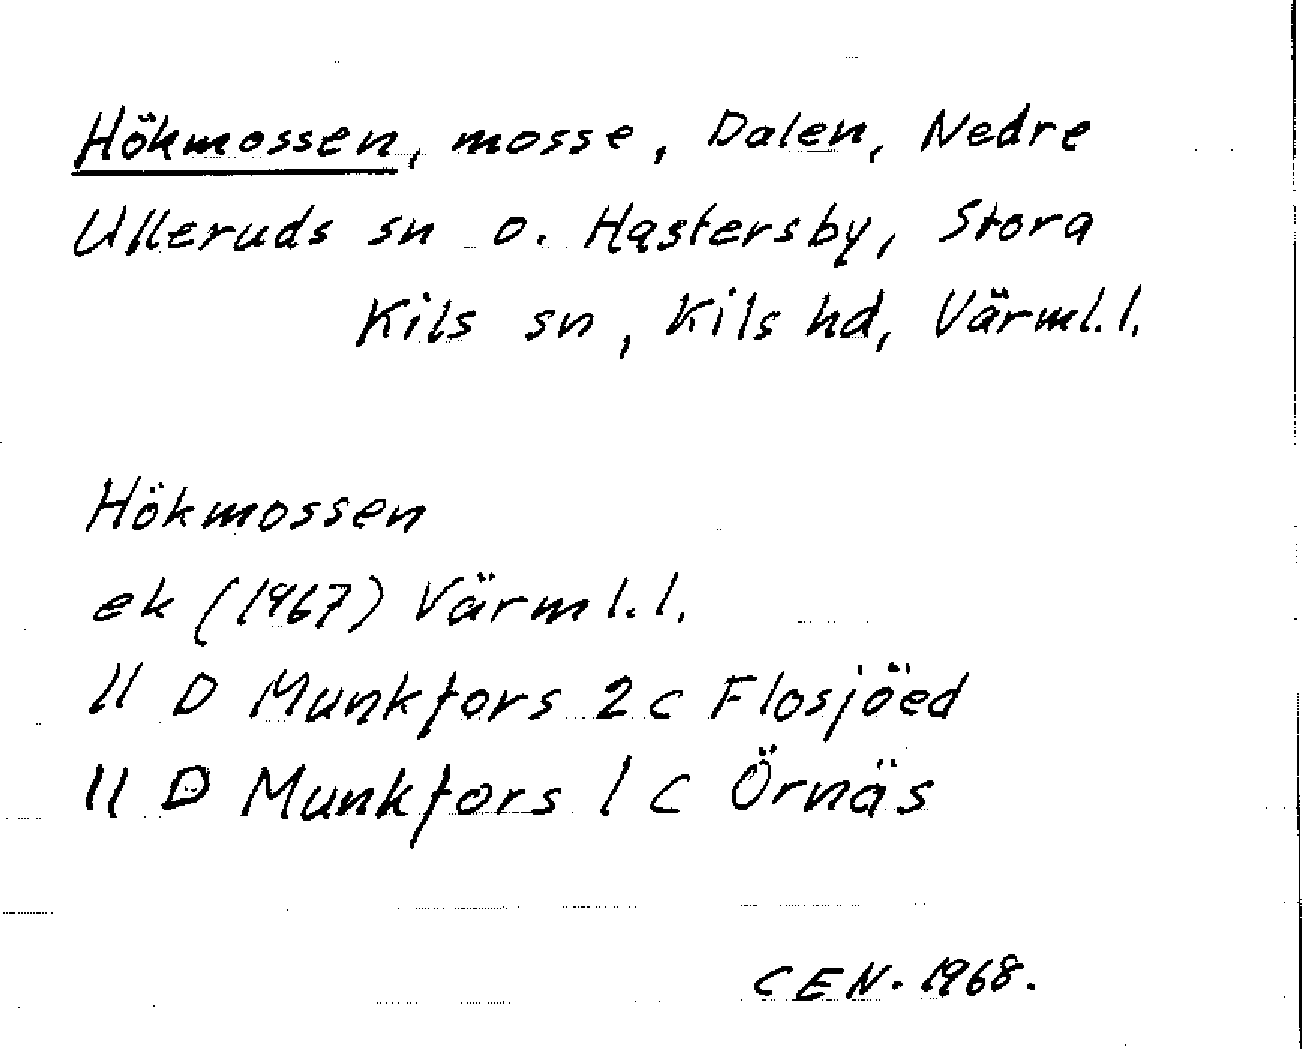 Hökmossen, mosse, Dalen, Nedre
Ulleruds sn o. Hastersby, Stora
Kils sn, Kils hd, Värml. l.
Hökmossen
ek (1967) Värml. l.
11 D Munkfors 2 c Flosjöed
11 D Munkfors 1 c Örnäs
CEN. 1968.